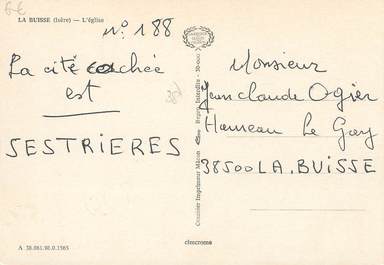 6€
LA BUISSE (Isère) — L'église
n° 188
La cité cachée
est
SESTRIERES
Monsieur
Jean Claude Ogier
Hameau Le Gay
38500 LA. BUISSE
Combier Imprimeur Mâcon
Repro. Interdite
cimcrome
A 38.061.00.0.1565